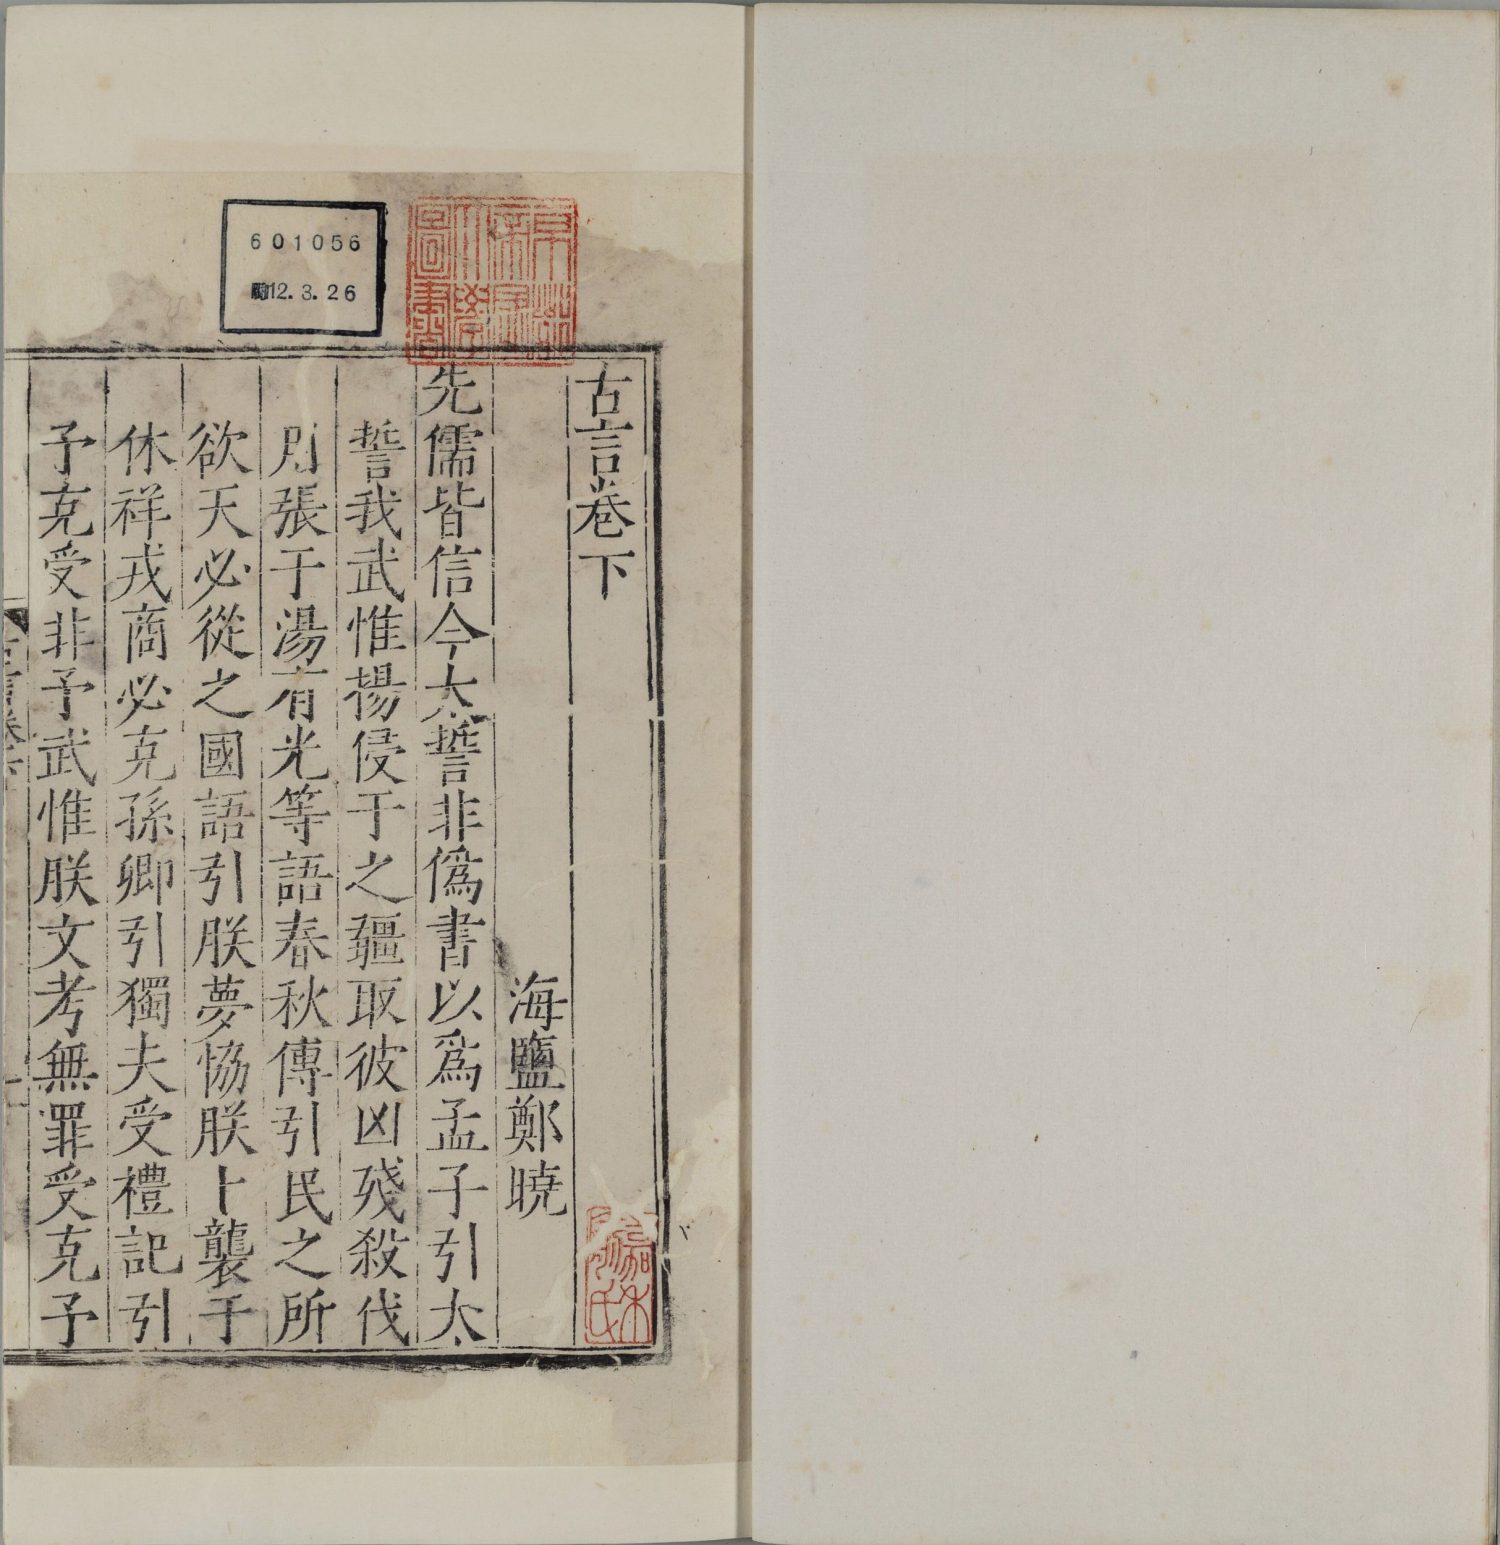 古言卷下
海鹽鄭曉
先儒皆信今太誓非僞書以爲孟子引太
誓我武惟揚侵于之疆取彼凶殘殺伐
用張于湯有光等語春秋傳引民之所
欲天必從之國語引朕夢協朕卜襲于
休祥戎商必克孫卿引獨夫受禮記引
予克受非予武惟朕文考無罪受克予
601056
12.3.26